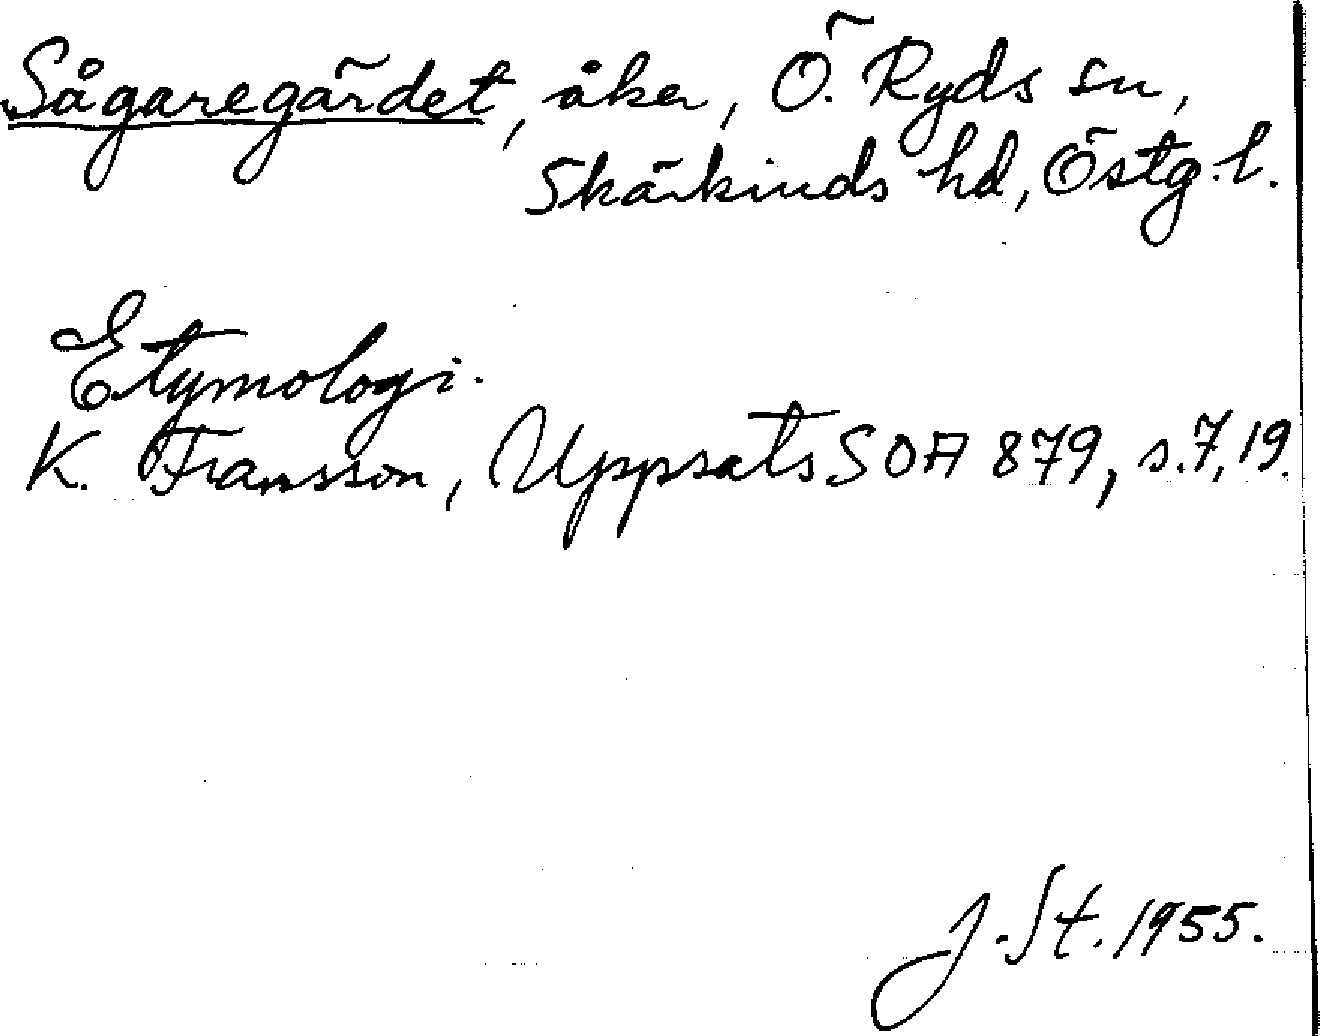 Sågaregärdet, åker, Ö. Ryds sn,
Skärkinds hd, Östg. l.
Etymologi.
K. Fransson, Uppsats SOA 879, s. 7, 19.
J. St. 1955.